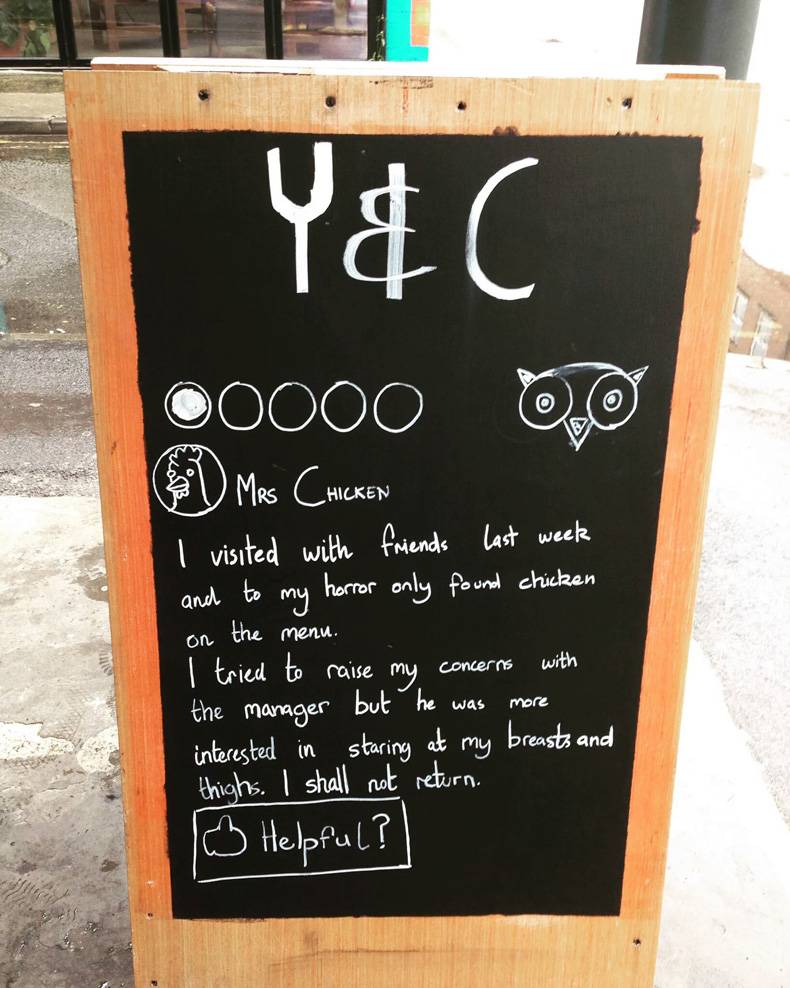 Y & C
MRS CHICKEN
I visited with friends last week
and to my horror only found chicken
on the menu.
I tried to raise my concerns with
the manager but he was more
interested in staring at my breasts and
thighs. I shall not return.
Helpful?